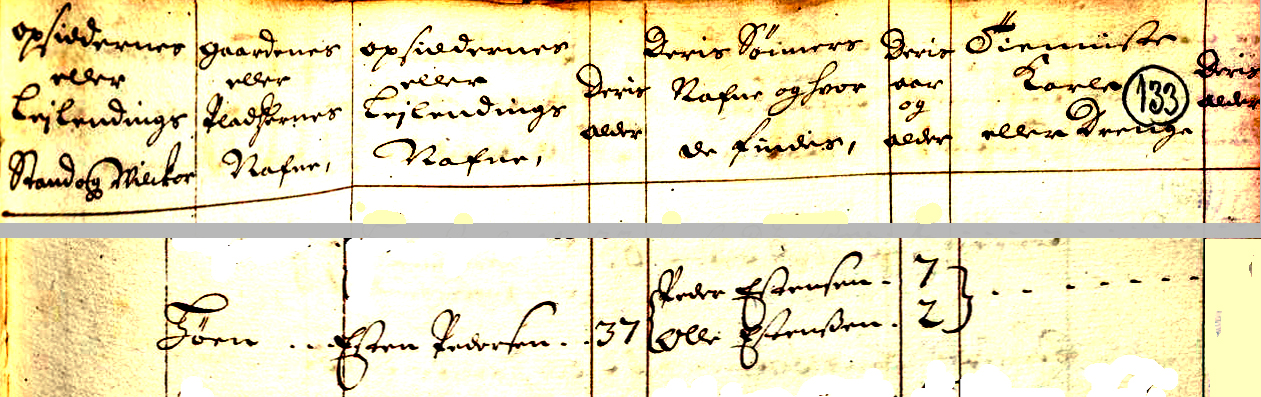 opsiddernes
eller
Leilendings
Stand og Wilckor
gaardenes
eller
Pladzernes
Nafne,
opsiddernes
eller
Leilendings
Nafne,
Deris
alder
Deris Sønners
Nafne og hvor
de findis,
Deris
aar
og
alder
Tienniste
Karle
eller Drenge
133
Deris
alder
Esten Pedersen
37
Peder Estensen
7
Olle Estensen
2